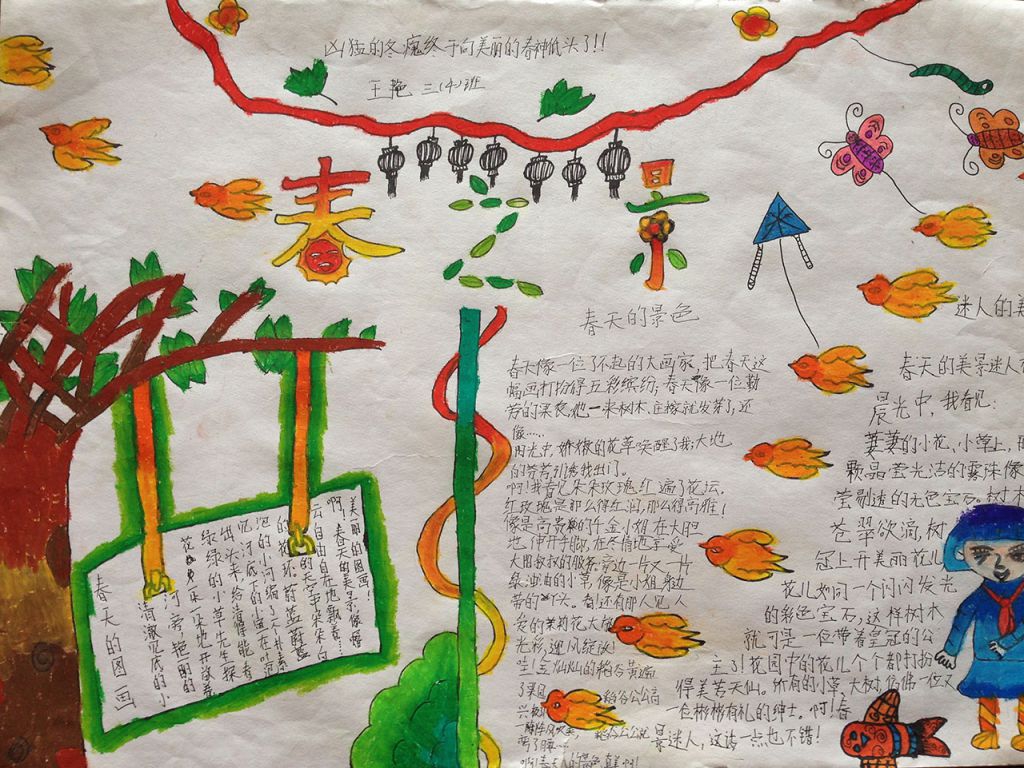 凶猛的冬魔终于向美丽的春神低头了!!!
王艳 三(4)班
春之景
春天的景色
春天像一位了不起的大画家,把春天这
幅画打扮得五彩缤纷;春天像一位勤
劳的果农,他一来树木、庄稼就发芽了,还
像……
阳光中,娇嫩的花草唤醒了我,大地
的芳香引诱我出门。
啊!我看见朵朵玫瑰红遍了花坛,
红玫瑰是那么得红润,那么得高雅!
像是高贵的千金小姐在大胆
地伸开手脚,在尽情地享受
大田叔叔的服务;旁边一片又一片
绿油油的小草像是小姐身边
带的个头。看!还有那人见人
爱的茉莉花大放
光彩,迎风绽放!
哇!金灿灿的稻谷黄遍
了果园
稻谷公公高
兴极
稻谷公公说
啊!春天的景色真美啊!
迷人的美
春天的美景迷人
晨光中,我看见:
萋萋的小花,小草上,
颗晶莹光洁的露珠像
莹剔透的无色宝石。树木
苍翠欲滴,树
冠上开美丽花儿
花儿如同一个闪闪发光
的彩色宝石,这样树木
就可是一位带着皇冠的公
主了!花园中的花儿个个都打扮
得美若天仙。所有的小草,大树,仿佛一位又
一位彬彬有礼的绅士。啊!春
景迷人,这话一点也不错!
美丽的图画!
啊!春天的美景,像幅
云自由自在地飘着……
的天空中朵朵白
的树环。蔚蓝蔚蓝
边的小河编了一个朴素
记。河底下的鱼在吐泡
出头来,给清澈能看
绿绿的小草先生探
花儿一朵一朵地开放着
河旁艳丽的
清澈见底的小
春天的图画